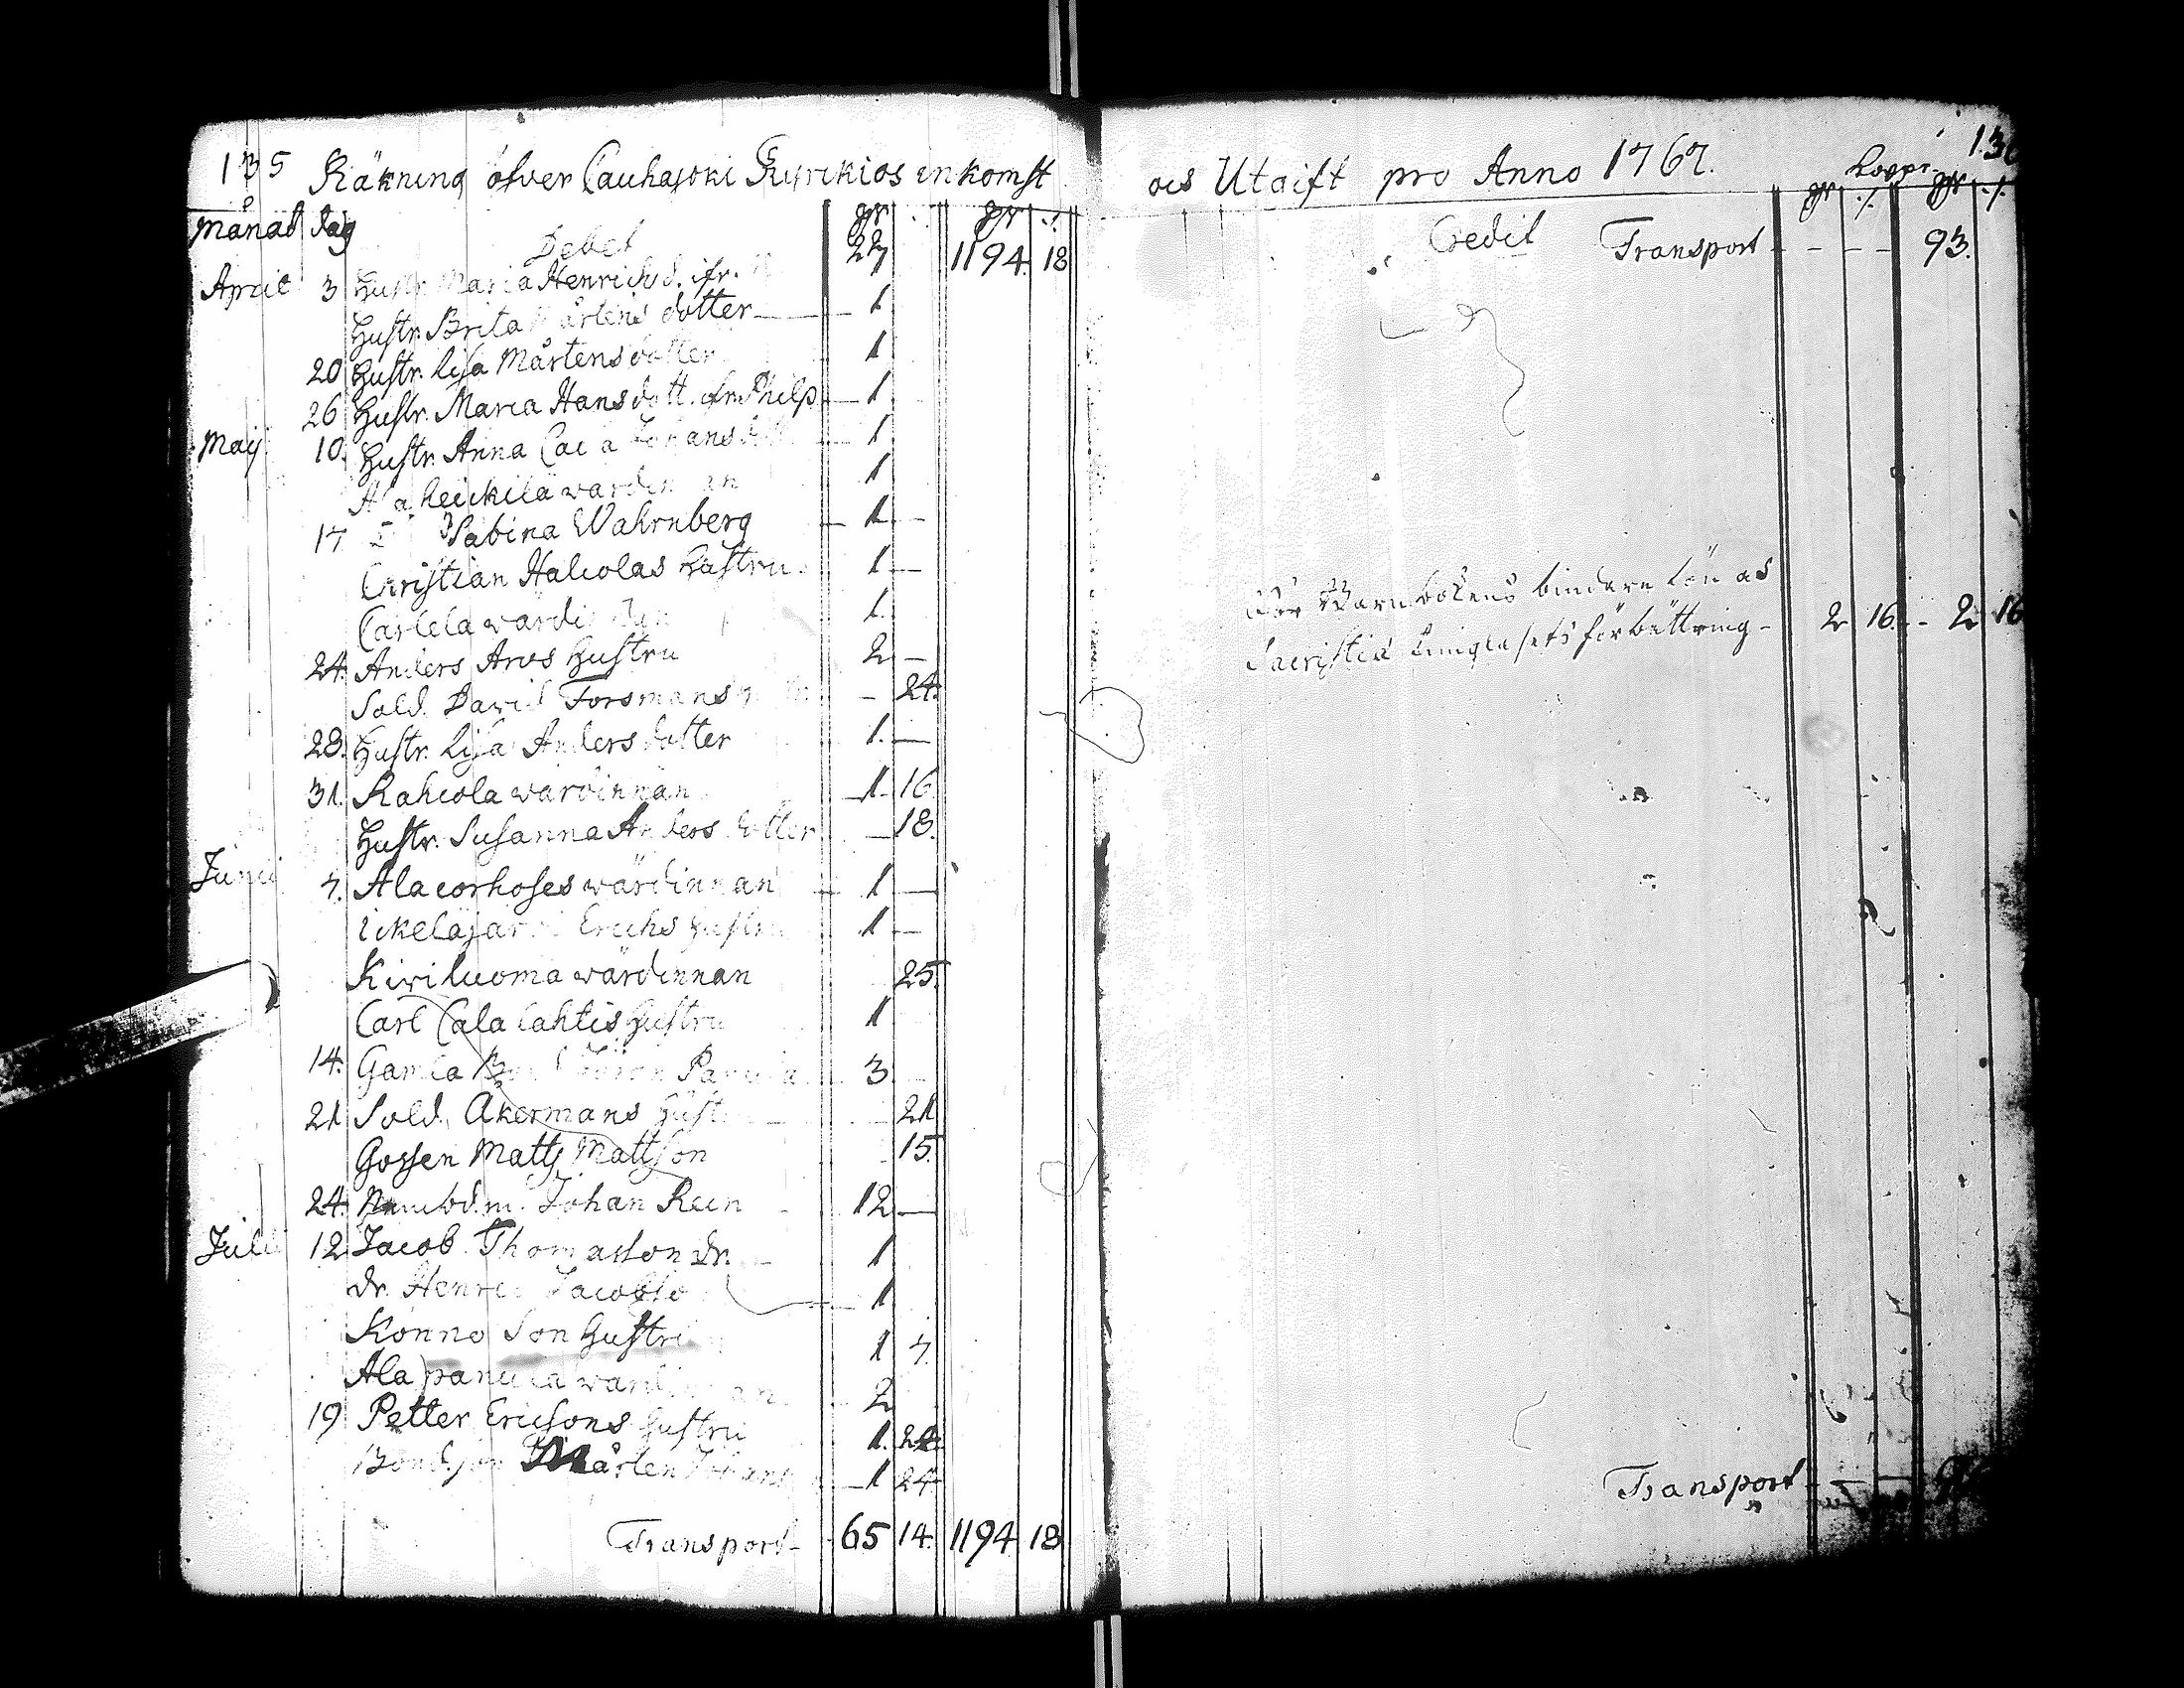 135 Räkning öfver Cauhajoki Kyrckios inkomst
Månad Dag Debet
27 1194. 18
April 3 Hustr. Maria Henrichsd. ifr.
Hustr. Brita Mårtens dotter 1
20 Hustr. Lisa Mårtens dotter 1
26 Hustr. Maria Hansdott. ifr. Philp 1
Maij 10. Hustr. Anna Johans 1
Ala heickilä wardinnan 1
17 Sabina Wahrnberg 1
Christian Halcolas Hustru 1
Carlela wardinnan 1
24. Anders Aros Hustru 2
Sold. David Forsmans 24.
28. Hustr. Lisa Anders dotter 1.
31. Rahcola wardinnan 1 16
Hustr. Susanna Anders dotter 18.
Junii 7. Alacorhoses wärdinnan 1
Ickeläjärvi Erichs Hustru 1
Kiriluoma wärdinnan 25.
Carl Cala lahtis Hustru 1
14. Gamla 3
21 Sold. Åkermans Hustru 21
Gossen Matts Mattsson 15.
24. Johan Rein 12
Julii 12 Jacob Thomasson dr. 1
dr. Henric Jacobso 1
Konno Son Hustru 1 7.
Ala panula wardinnan 2
19 Petter Ericsons Hustru 1. 24.
Bondeson Mårten Johans 1 24
Transport 65 14. 1194 18
och Utgift pro Anno 1767. 136
Credit Transport 93.
bindare lön och
Sacristie förbättring 2 16. 2 16
Transport